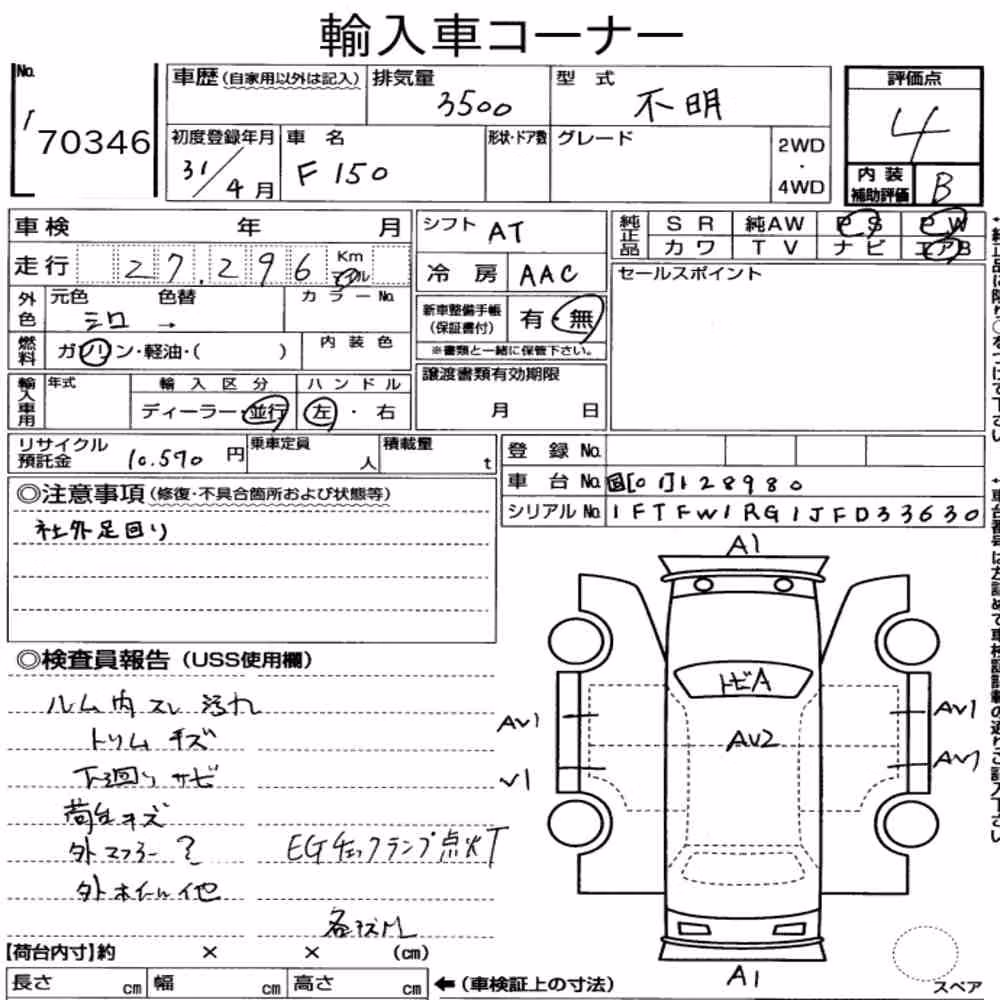 輸入車コーナー
No. 車歴(自家用以外は記入) 排気量 3500 型式 不明 評価点 4
1 70346
初度登録年月 31/4月 車名 F150 形状・ドア数 グレード 2WD・4WD
内装補助評価 B
車検 年 月 シフト AT 純正品 SR 純AW PS PW
カワ TV ナビ エアB
走行 27.296 Km マイル 冷房 AAC セールスポイント
外色 元色 シロ 色替 → カラーNo. 新車整備手帳(保証書付) 有・無
※書類と一緒に保管下さい。
燃料 ガソリン・軽油・( ) 内装色
譲渡書類有効期限
月 日
輸入車用 年式 輸入区分 ハンドル
ディーラー・並行 左・右
リサイクル預託金 10.570円 乗車定員 人 積載量 t 登録No.
車台No. 国[01]128980
シリアルNo. 1FTFW1RG1JFD33630
◎注意事項(修復・不具合箇所および状態等)
社外足回り
A1
◎検査員報告(USS使用欄)
トビA
ルーム内スレ汚れ
AV1 AV1
トリムキズ
AV2
下廻りサビ
V1
荷台キズ
外マフラー?
EGチェックランプ点灯
外ホイール他
各キズ
【荷台内寸】約 × × (cm)
A1
長さ cm 幅 cm 高さ cm ←(車検証上の寸法)
スペア